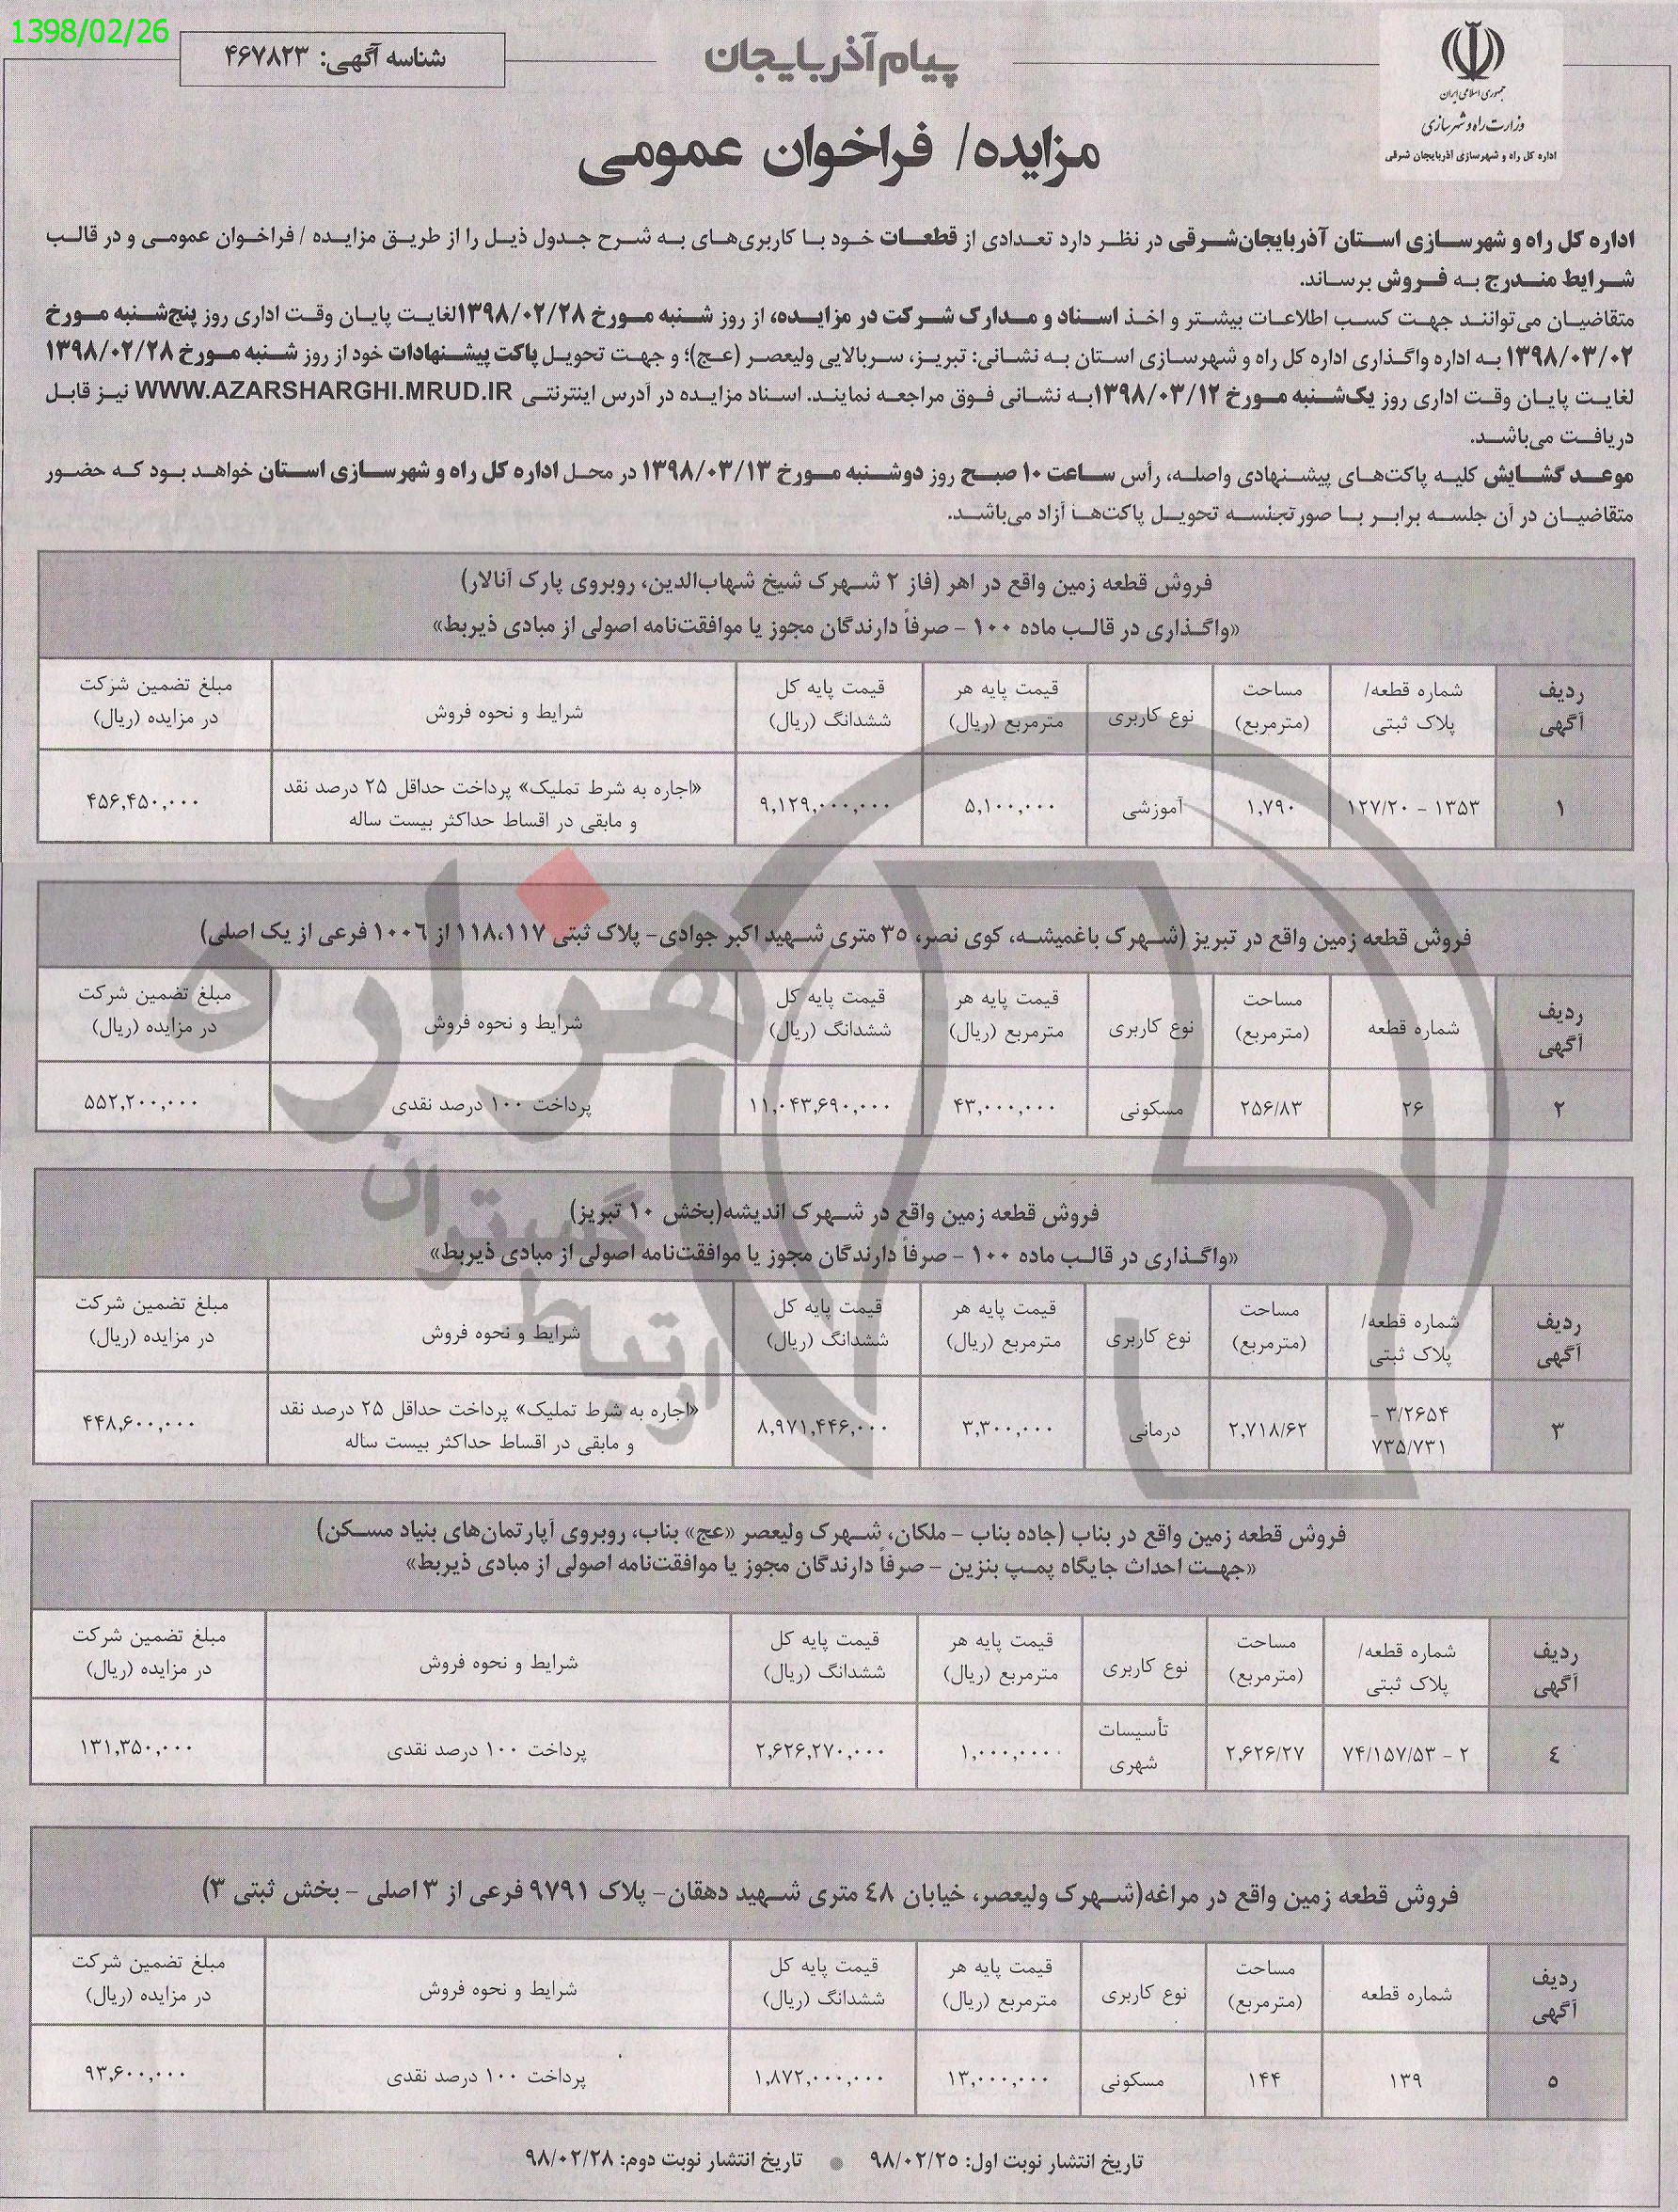 1398/02/26
شناسه آگهی: ۴۶۷۸۲۳
پیام آذربایجان
جمهوری اسلامی ایران
وزارت راه و شهرسازی
اداره کل راه و شهرسازی آذربایجان شرقی
مزایده/ فراخوان عمومی
اداره کل راه و شهرسازی استان آذربایجان‌شرقی در نظر دارد تعدادی از قطعات خود با کاربری‌های به شرح جدول ذیل را از طریق مزایده / فراخوان عمومی و در قالب
شرایط مندرج به فروش برساند.
متقاضیان می‌توانند جهت کسب اطلاعات بیشتر و اخذ اسناد و مدارک شرکت در مزایده، از روز شنبه مورخ ۱۳۹۸/۰۲/۲۸لغایت پایان وقت اداری روز پنج‌شنبه مورخ
۱۳۹۸/۰۳/۰۲ به اداره واگذاری اداره کل راه و شهرسازی استان به نشانی: تبریز، سربالایی ولیعصر (عج)؛ و جهت تحویل پاکت پیشنهادات خود از روز شنبه مورخ ۱۳۹۸/۰۲/۲۸
لغایت پایان وقت اداری روز یک‌شنبه مورخ ۱۳۹۸/۰۳/۱۲به نشانی فوق مراجعه نمایند. اسناد مزایده در آدرس اینترنتی WWW.AZARSHARGHI.MRUD.IR نیز قابل
دریافت می‌باشد.
موعد گشایش کلیه پاکت‌های پیشنهادی واصله، رأس ساعت ۱۰ صبح روز دوشنبه مورخ ۱۳۹۸/۰۳/۱۳ در محل اداره کل راه و شهرسازی استان خواهد بود که حضور
متقاضیان در آن جلسه برابر با صورتجلسه تحویل پاکت‌ها آزاد می‌باشد.
فروش قطعه زمین واقع در اهر (فاز ۲ شهرک شیخ شهاب‌الدین، روبروی پارک آنالار)
«واگذاری در قالب ماده ۱۰۰ - صرفاً دارندگان مجوز یا موافقت‌نامه اصولی از مبادی ذیربط»
ردیف آگهی شماره قطعه/ پلاک ثبتی مساحت (مترمربع) نوع کاربری قیمت پایه هر مترمربع (ریال) قیمت پایه کل ششدانگ (ریال) شرایط و نحوه فروش مبلغ تضمین شرکت در مزایده (ریال)
۱ ۱۳۵۳ - ۱۲۷/۲۰ ۱,۷۹۰ آموزشی ۵,۱۰۰,۰۰۰ ۹,۱۲۹,۰۰۰,۰۰۰ «اجاره به شرط تملیک» پرداخت حداقل ۲۵ درصد نقد و مابقی در اقساط حداکثر بیست ساله ۴۵۶,۴۵۰,۰۰۰
فروش قطعه زمین واقع در تبریز (شهرک باغمیشه، کوی نصر، ۳۵ متری شهید اکبر جوادی- پلاک ثبتی ۱۱۸،۱۱۷ از ۱۰۰۶ فرعی از یک اصلی)
ردیف آگهی شماره قطعه مساحت (مترمربع) نوع کاربری قیمت پایه هر مترمربع (ریال) قیمت پایه کل ششدانگ (ریال) شرایط و نحوه فروش مبلغ تضمین شرکت در مزایده (ریال)
۲ ۲۶ ۲۵۶/۸۳ مسکونی ۴۳,۰۰۰,۰۰۰ ۱۱,۰۴۳,۶۹۰,۰۰۰ پرداخت ۱۰۰ درصد نقدی ۵۵۲,۲۰۰,۰۰۰
فروش قطعه زمین واقع در شهرک اندیشه(بخش ۱۰ تبریز)
«واگذاری در قالب ماده ۱۰۰ - صرفاً دارندگان مجوز یا موافقت‌نامه اصولی از مبادی ذیربط»
ردیف آگهی شماره قطعه/ پلاک ثبتی مساحت (مترمربع) نوع کاربری قیمت پایه هر مترمربع (ریال) قیمت پایه کل ششدانگ (ریال) شرایط و نحوه فروش مبلغ تضمین شرکت در مزایده (ریال)
۳ ۳/۲۶۵۴ - ۷۳۵/۷۳۱ ۲,۷۱۸/۶۲ درمانی ۳,۳۰۰,۰۰۰ ۸,۹۷۱,۴۴۶,۰۰۰ «اجاره به شرط تملیک» پرداخت حداقل ۲۵ درصد نقد و مابقی در اقساط حداکثر بیست ساله ۴۴۸,۶۰۰,۰۰۰
فروش قطعه زمین واقع در بناب (جاده بناب - ملکان، شهرک ولیعصر «عج» بناب، روبروی آپارتمان‌های بنیاد مسکن)
«جهت احداث جایگاه پمپ بنزین - صرفاً دارندگان مجوز یا موافقت‌نامه اصولی از مبادی ذیربط»
ردیف آگهی شماره قطعه/ پلاک ثبتی مساحت (مترمربع) نوع کاربری قیمت پایه هر مترمربع (ریال) قیمت پایه کل ششدانگ (ریال) شرایط و نحوه فروش مبلغ تضمین شرکت در مزایده (ریال)
٤ ۲ - ۷۴/۱۵۷/۵۳ ۲,۶۲۶/۲۷ تأسیسات شهری ۱,۰۰۰,۰۰۰ ۲,۶۲۶,۲۷۰,۰۰۰ پرداخت ۱۰۰ درصد نقدی ۱۳۱,۳۵۰,۰۰۰
فروش قطعه زمین واقع در مراغه(شهرک ولیعصر، خیابان ٤۸ متری شهید دهقان- پلاک ۹۷۹۱ فرعی از ۳ اصلی - بخش ثبتی ۳)
ردیف آگهی شماره قطعه مساحت (مترمربع) نوع کاربری قیمت پایه هر مترمربع (ریال) قیمت پایه کل ششدانگ (ریال) شرایط و نحوه فروش مبلغ تضمین شرکت در مزایده (ریال)
۵ ۱۳۹ ۱۴۴ مسکونی ۱۳,۰۰۰,۰۰۰ ۱,۸۷۲,۰۰۰,۰۰۰ پرداخت ۱۰۰ درصد نقدی ۹۳,۶۰۰,۰۰۰
تاریخ انتشار نوبت اول: ۹۸/۰۲/۲۵ ● تاریخ انتشار نوبت دوم: ۹۸/۰۲/۲۸
هزاره
ارتباط گستران